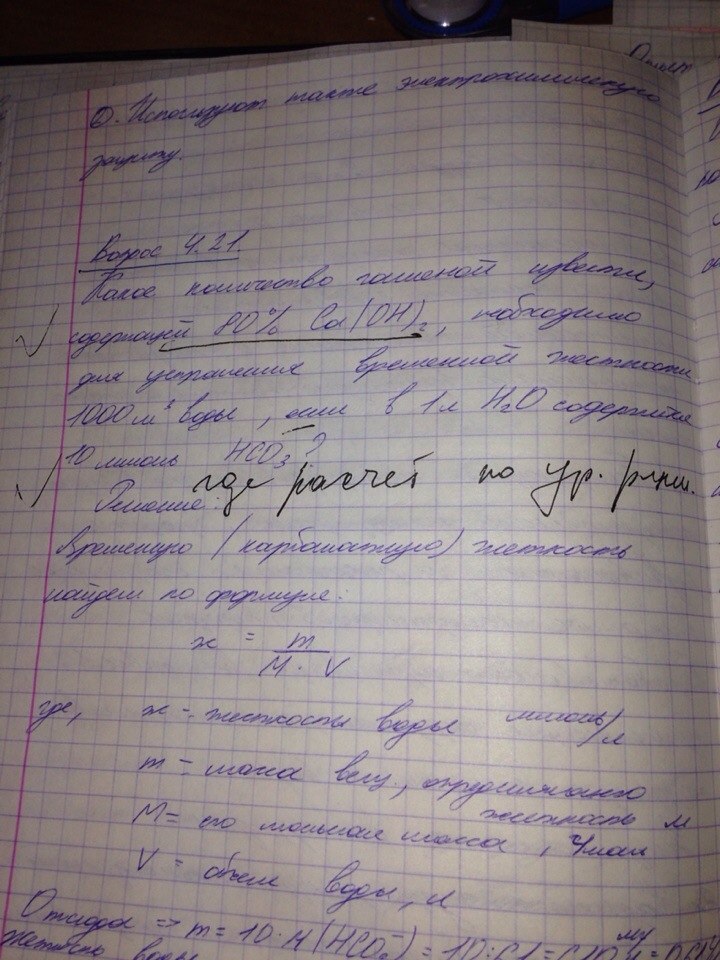 ②. Используют также электрохимическую
защиту.
Вопрос 4.21.
Какое количество гашеной извести,
содержащей 80% Ca(OH)₂, необходимо
для устранения временной жесткости
1000 м³ воды, если в 1 л H₂O содержится
10 ммоль HCO₃⁻?
где расчет по ур.
Решение:
Временную (карбонатную) жесткость
найдем по формуле:
ж = m / M · V
где, ж - жесткость воды ммоль/л
m = масса вещ., определяющего
жесткость
M = его мольная масса,
V = объем воды, л
Отсюда => m = 10 · M(HCO₃⁻) = 10 · 61 = 610 мг
жесткость воды